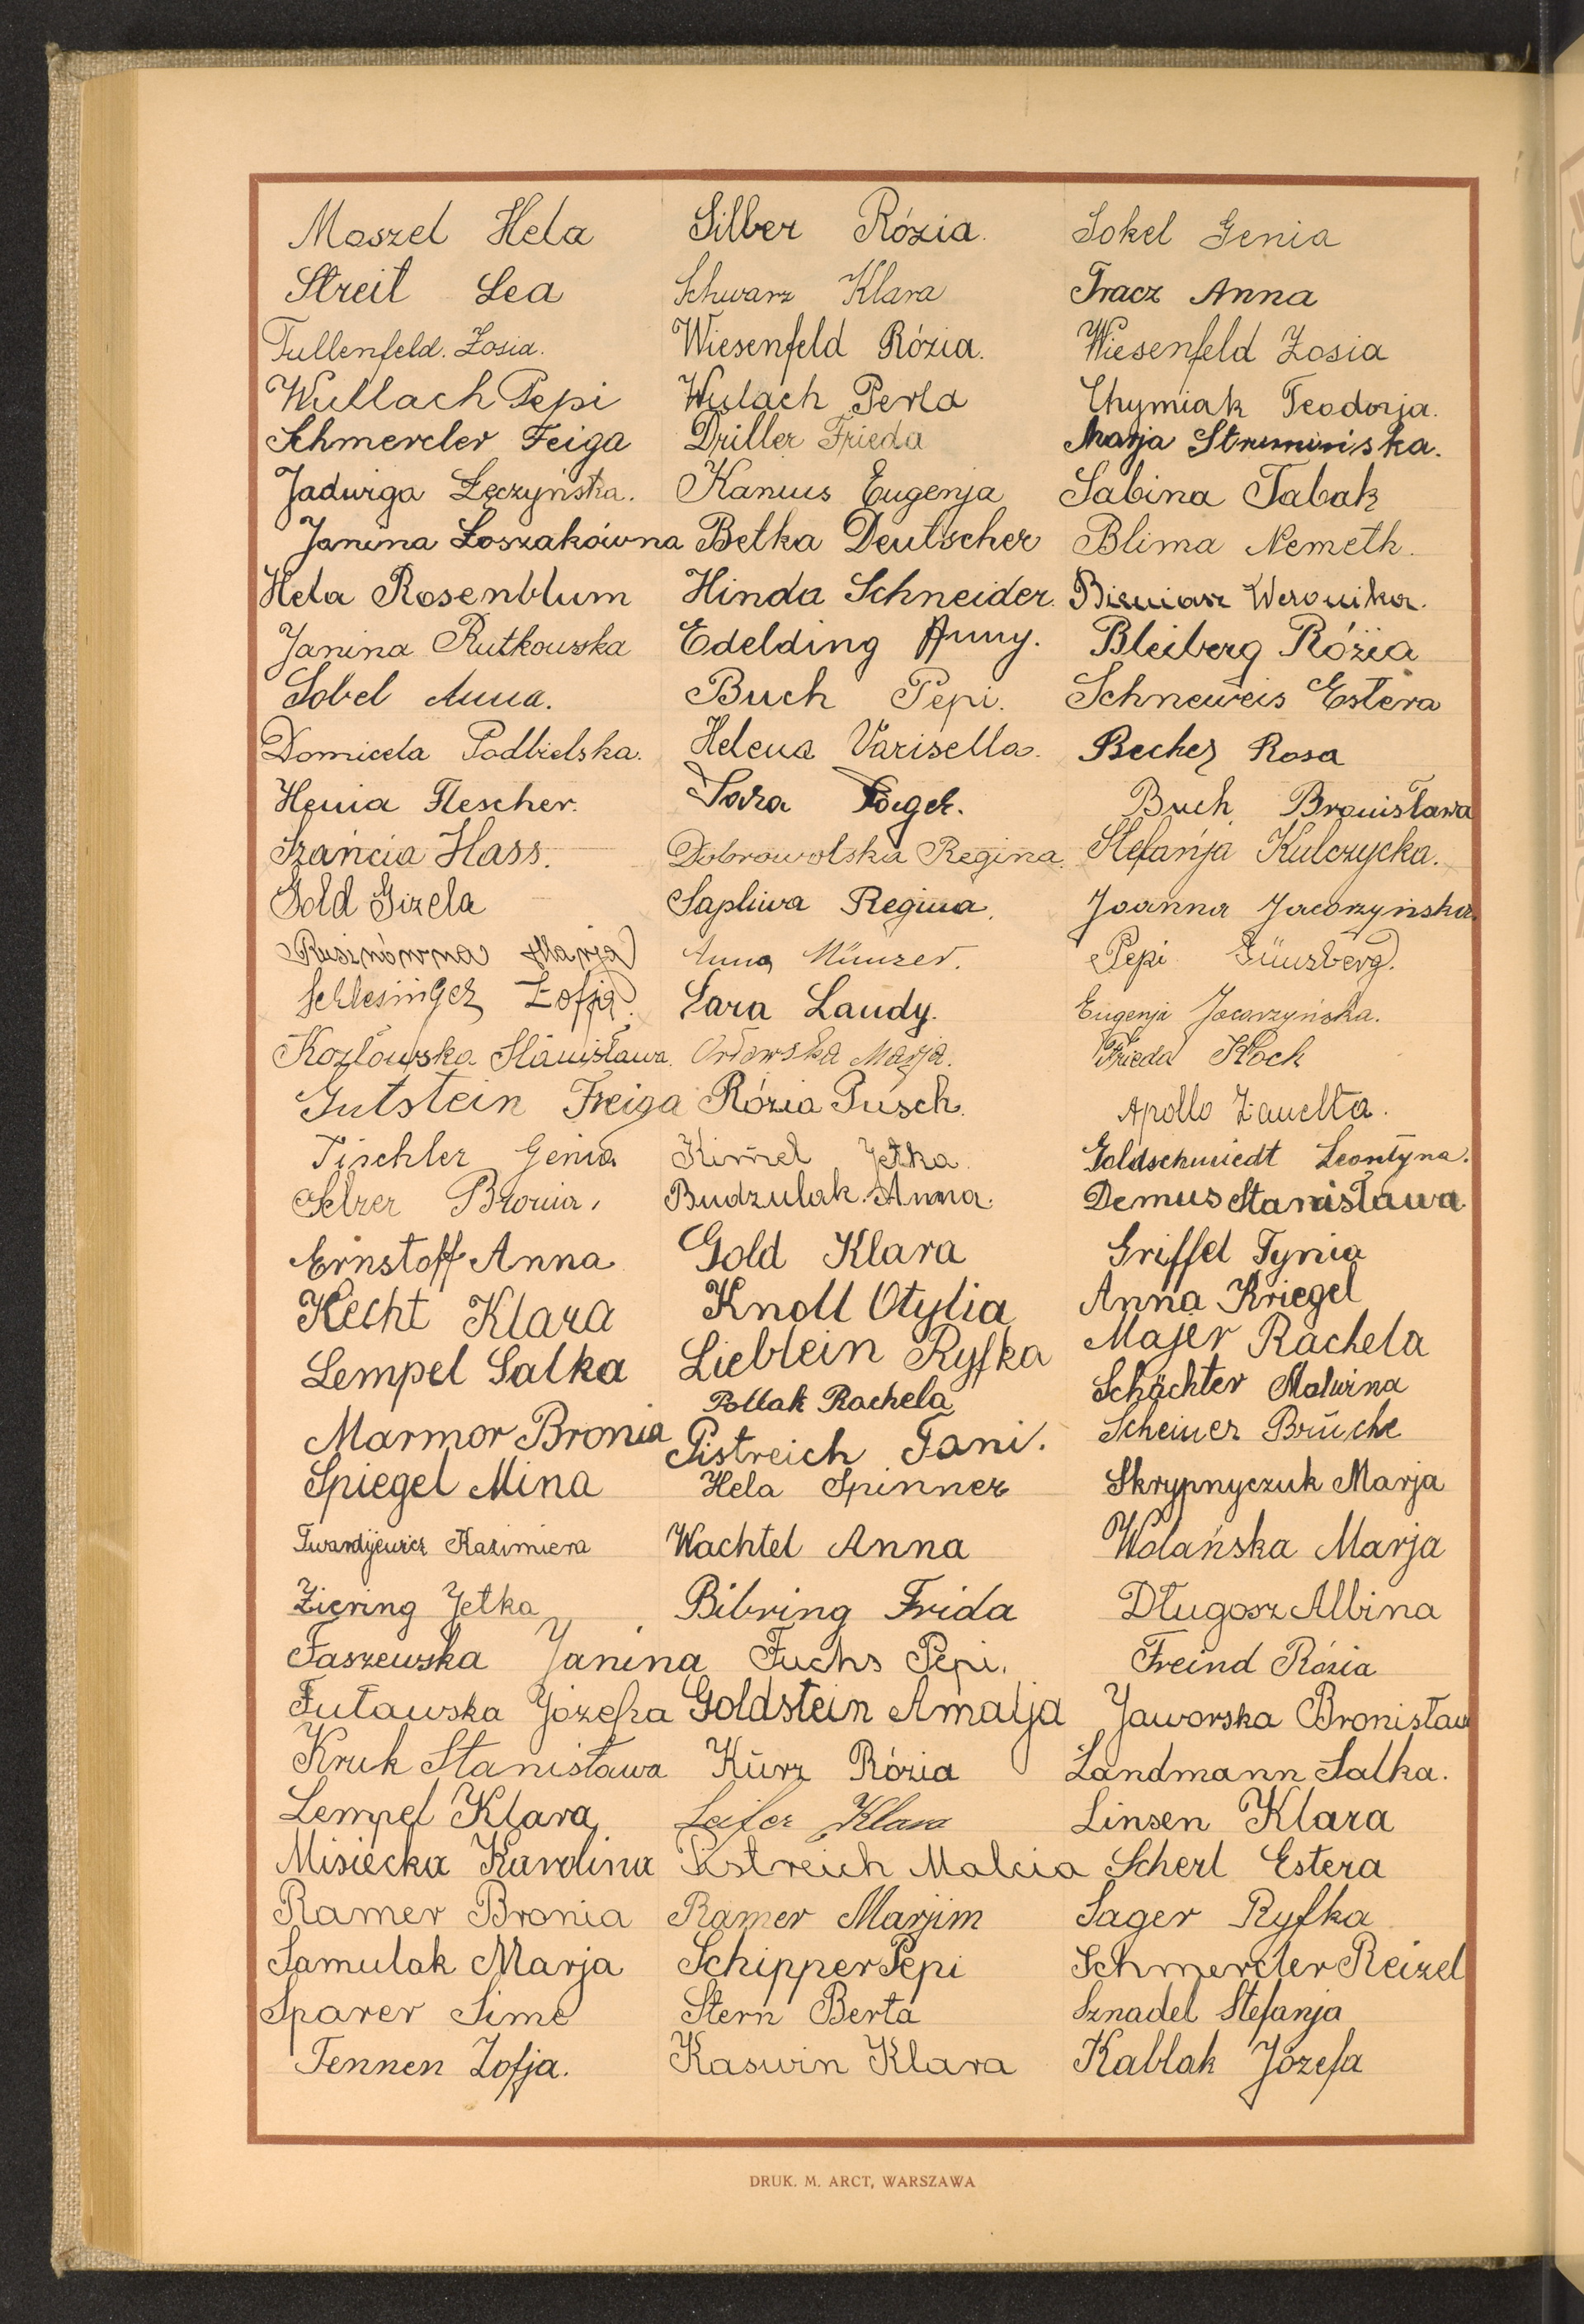 Moszel Hela Silber Rózia. Sokel Genia
Streit Lea Schwarz Klara Tracz Anna
Tullenfeld. Zosia. Wiesenfeld Rózia. Wiesenfeld Zosia
Wullach Pepi Wulach Perla Chymiak Teodozja.
Schmercler Feiga Driller Frieda Marja Strumińska.
Jadwiga Łęczyńska. Kanius Eugenja Sabina Tabak
Janina Łoszakówna Betka Deutscher Blima Nemeth.
Hela Rosenblum Hinda Schneider. Bieniasz Weronika.
Janina Rutkowska Edelding Anny. Bleiberg Rózia
Sobel Anna. Buch Pepi. Schneweis Estera
Domicela Podbielska. Helena Varisella. Becher Rosa
Henia Flescher. Sara Hass. Buch Bronisława
Szańcia Hass. Dobrowolska Regina. Stefanja Kulczycka.
Gold Gizela Sapliwa Regina. Joanna Jacorzyńska.
Rusinówna Marja Anna Münzer. Pepi Günzberg.
Schlesinger Zofja. Sara Laudy. Eugenja Jacorzyńska.
Kozłowska Stanisława. Orłowska Marja. Frieda Koch
Gutstein Freiga Rózia Pusch. Apollo Żanetta.
Tischler Genia Kimel Jetka. Goldschmiedt Leontyna.
Selzer Bronia, Budzulak. Anna. Demus Stanisława.
Ernstoff Anna Gold Klara Griffel Tynia
Hecht Klara Knoll Otylia Anna Kriegel
Lempel Salka Lieblein Ryfka Majer Rachela
Pollak Rachela Schächter Malwina
Marmor Bronia Pistreich Fani. Scheiner Brūche
Spiegel Mina Hela Spinner Skrypnyczuk Marja
Twardijewicz Kazimiera Wachtel Anna Wolańska Marja
Ziering Jetka Bibring Frida Długosz Albina
Faszewska Janina Fuchs Pepi. Freind Rózia
Futawska Józefka Goldstein Amalja Jaworska Bronisław
Kruk Stanisława Kūrz Rózia Landmann Salka.
Lempel Klara Leifer Klara Linsen Klara
Misiecka Karolina Pistreich Malcia Scherl Estera
Ramer Bronia Ramer Marjim Sager Ryfka
Samulak Marja Schipper Pepi Schmercler Reizel
Sparer Sime Stern Berta Sznadel Stefanja
Tennen Zofja. Kaswin Klara Kablak Józefa
DRUK. M. ARCT, WARSZAWA